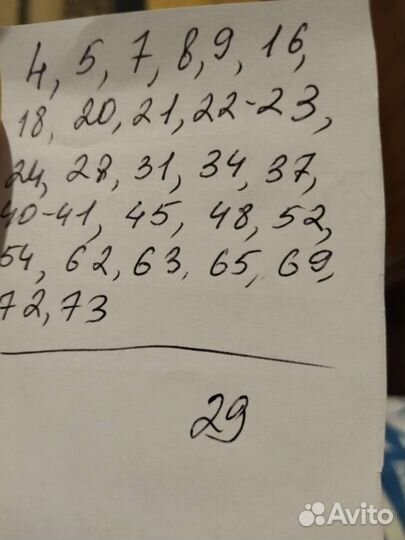 4, 5, 7, 8, 9, 16,
18, 20, 21, 22-23,
24, 28, 31, 34, 37,
40-41, 45, 48, 52,
54, 62, 63, 65, 69,
72, 73
29
Avito